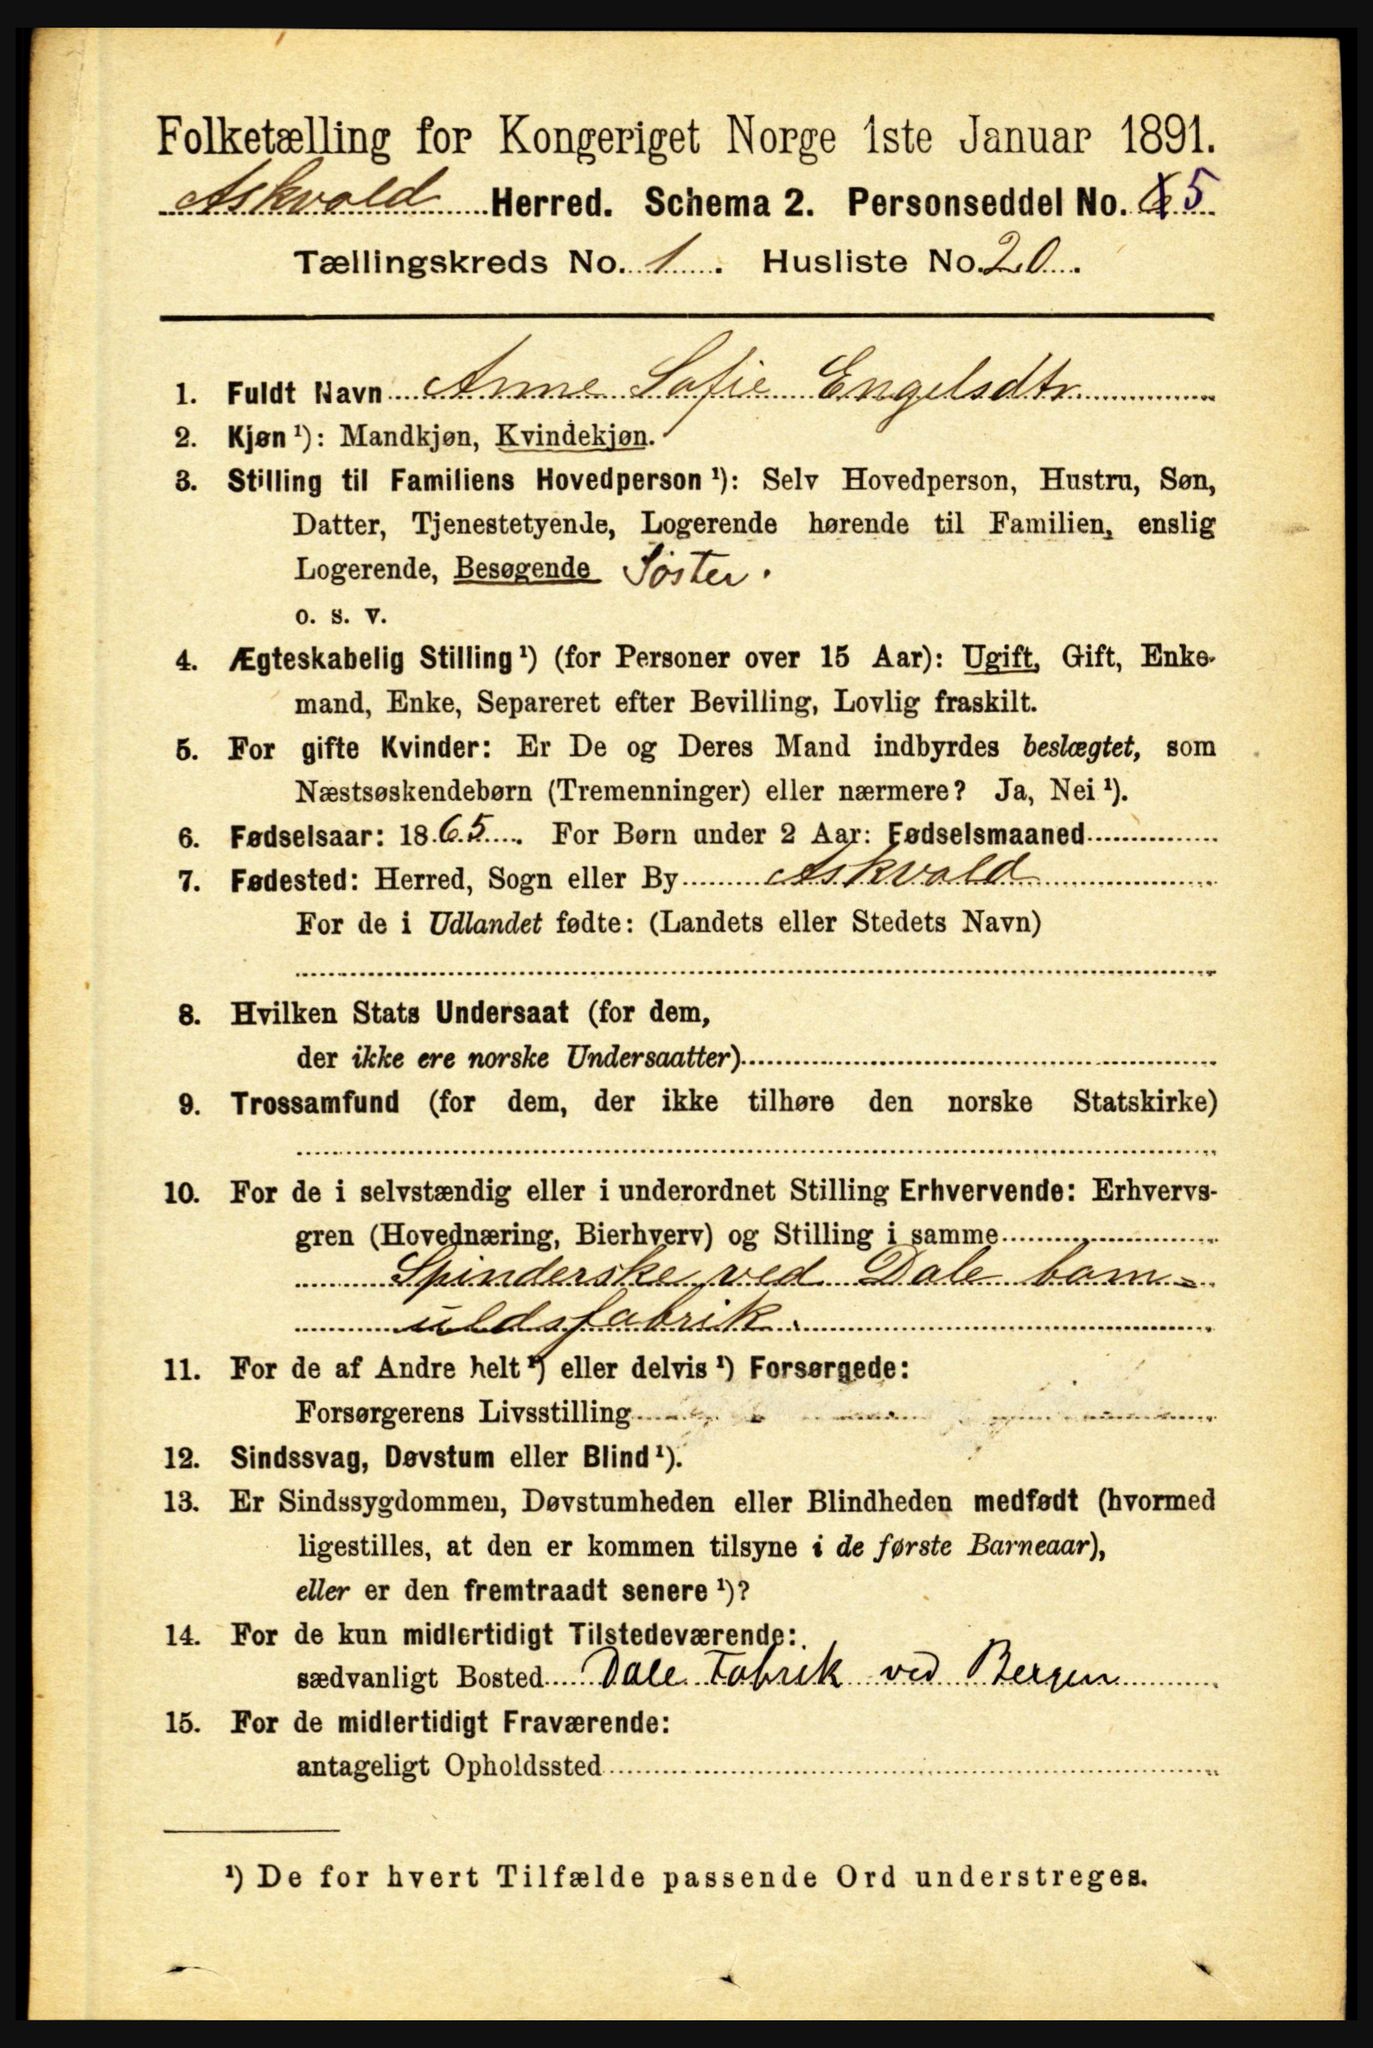 Folketælling for Kongeriget Norge 1ste Januar 1891.
Askvold Herred. Schema 2. Personseddel No. 5
Tællingskreds No. 1. Husliste No. 20.
1. Fuldt Navn Anne Sofie Engelsdtr.
2. Kjøn ¹): Mandkjøn, Kvindekjøn.
3. Stilling til Familiens Hovedperson ¹): Selv Hovedperson, Hustru, Søn,
Datter, Tjenestetyende, Logerende hørende til Familien, enslig
Logerende, Besøgende Søster.
o. s. v.
4. Ægteskabelig Stilling ¹) (for Personer over 15 Aar): Ugift, Gift, Enke-
mand, Enke, Separeret efter Bevilling, Lovlig fraskilt.
5. For gifte Kvinder: Er De og Deres Mand indbyrdes beslægtet, som
Næstsøskendebørn (Tremenninger) eller nærmere? Ja, Nei ¹).
6. Fødselsaar: 1865. For Børn under 2 Aar: Fødselsmaaned
7. Fødested: Herred, Sogn eller By Askvold
For de i Udlandet fødte: (Landets eller Stedets Navn)
8. Hvilken Stats Undersaat (for dem,
der ikke ere norske Undersaatter)
9. Trossamfund (for dem, der ikke tilhøre den norske Statskirke)
10. For de i selvstændig eller i underordnet Stilling Erhvervende: Erhvervs-
gren (Hovednæring, Bierhverv) og Stilling i samme
Spinderske ved Dale bom-
uldsfabrik.
11. For de af Andre helt ¹) eller delvis ¹) Forsørgede:
Forsørgerens Livsstilling
12. Sindssvag, Døvstum eller Blind ¹).
13. Er Sindssygdommen, Døvstumheden eller Blindheden medfødt (hvormed
ligestilles, at den er kommen tilsyne i de første Barneaar),
eller er den fremtraadt senere ¹)?
14. For de kun midlertidigt Tilstedeværende:
sædvanligt Bosted Dale Fabrik ved Bergen
15. For de midlertidigt Fraværende:
antageligt Opholdssted
¹) De for hvert Tilfælde passende Ord understreges.